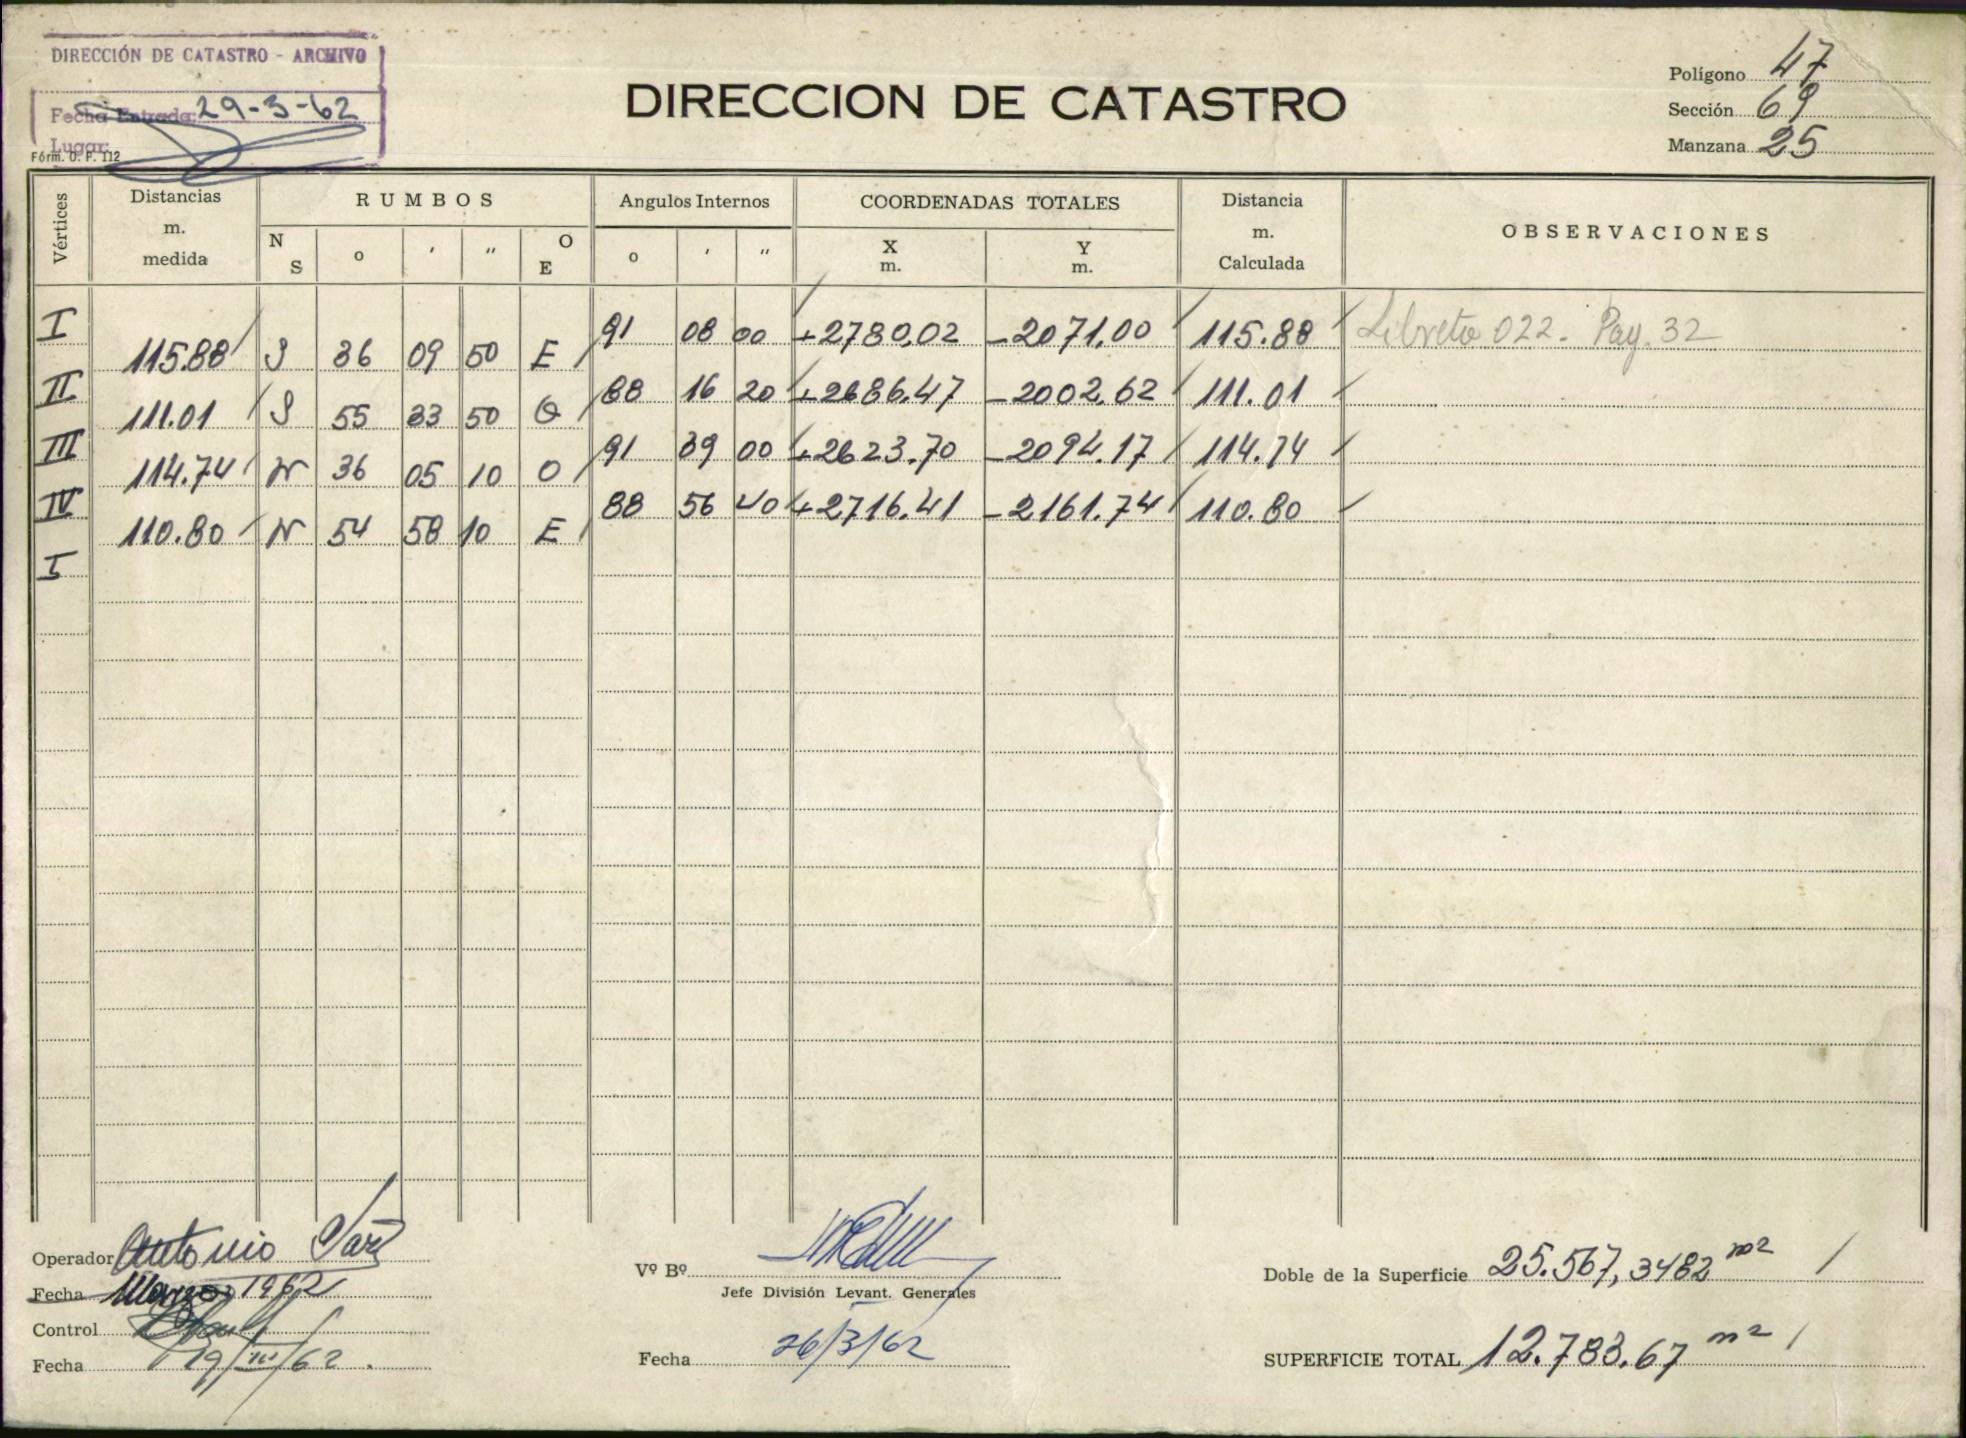 DIRECCIÓN DE CATASTRO - ARCHIVO
Fecha Entrada: 29-3-62
Lugar:
Fórm. D. F. 112
DIRECCION DE CATASTRO
Polígono 47
Sección 69
Manzana 25
Vértices
Distancias m. medida
RUMBOS
N S
o ′ ″
O E
Angulos Internos
o ′ ″
COORDENADAS TOTALES
X m.
Y m.
Distancia m. Calculada
OBSERVACIONES
I 91 08 00 +2780,02 -2071,00 115.88 Libreta 022. Pag. 32
115.88 S 36 09 50 E
II 88 16 20 +2686.47 -2002.62 111.01
111.01 S 55 33 50 O
III 91 39 00 +2623.70 -2094.17 114.74
114.74 N 36 05 10 O
IV 88 56 40 +2716.41 -2161.74 110.80
110.80 N 54 58 10 E
I
Operador Antonio
Fecha Marzo 1962
Control
Fecha 19/III/62.
Vº Bº
Jefe División Levant. Generales
Fecha 26/3/62
Doble de la Superficie 25.567,3482 m2
SUPERFICIE TOTAL 12.783.67 m2